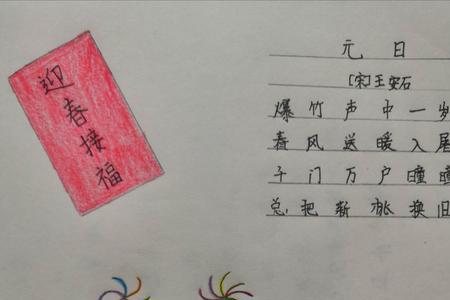 迎春接福
元日
[宋]王安石
爆竹声中一岁
春风送暖入屠
千门万户曈曈
总把新桃换旧